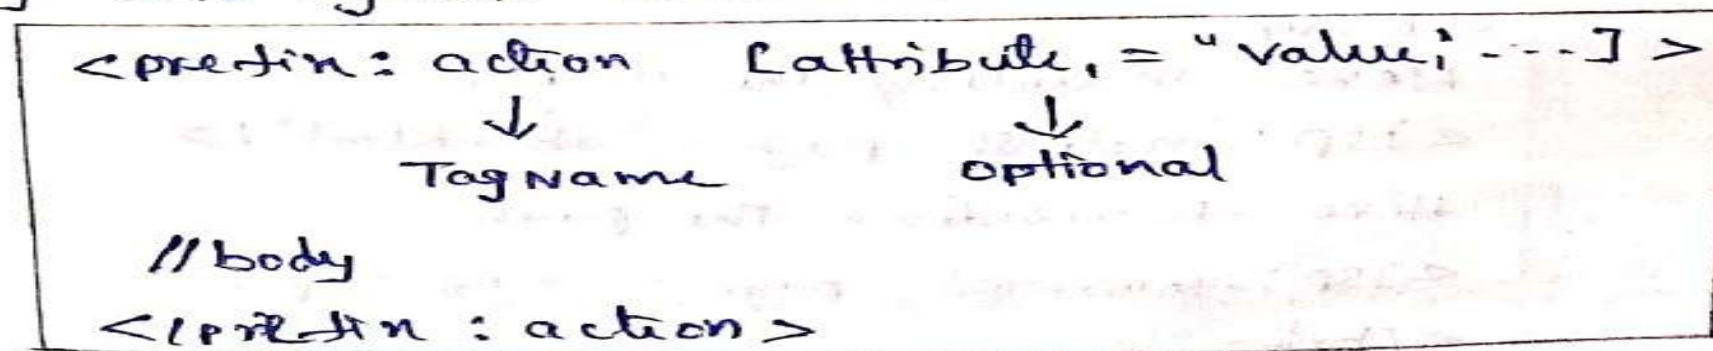 <prefix: action [attribute, = "value; ----] >
↓ ↓
TagName optional
//body
</prefix : action>